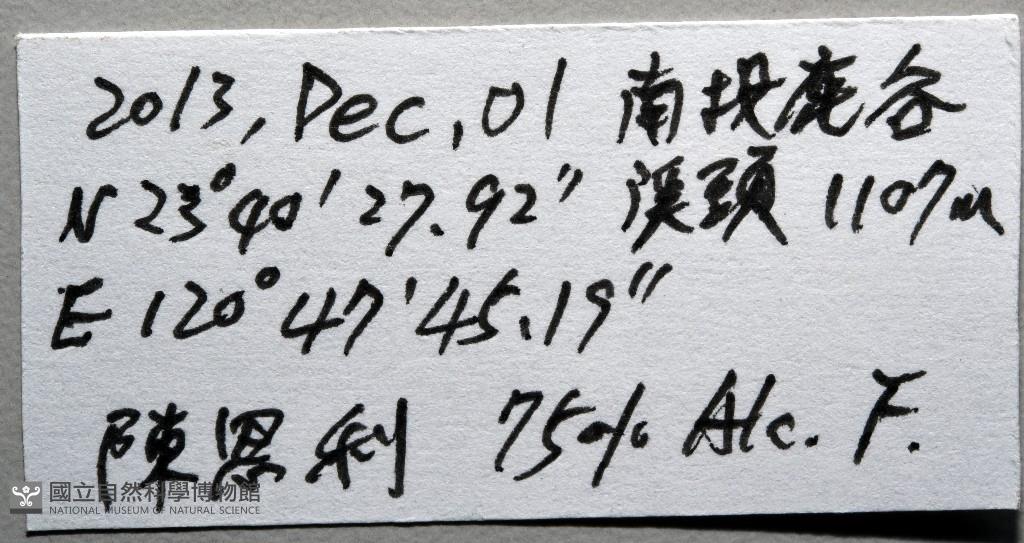 2013, Dec, 01 南投鹿谷
N 23°40'27.92" 溪頭 1107m
E 120°47'45.19"
陳恩利 75% Alc. F.
國立自然科學博物館
NATIONAL MUSEUM OF NATURAL SCIENCE